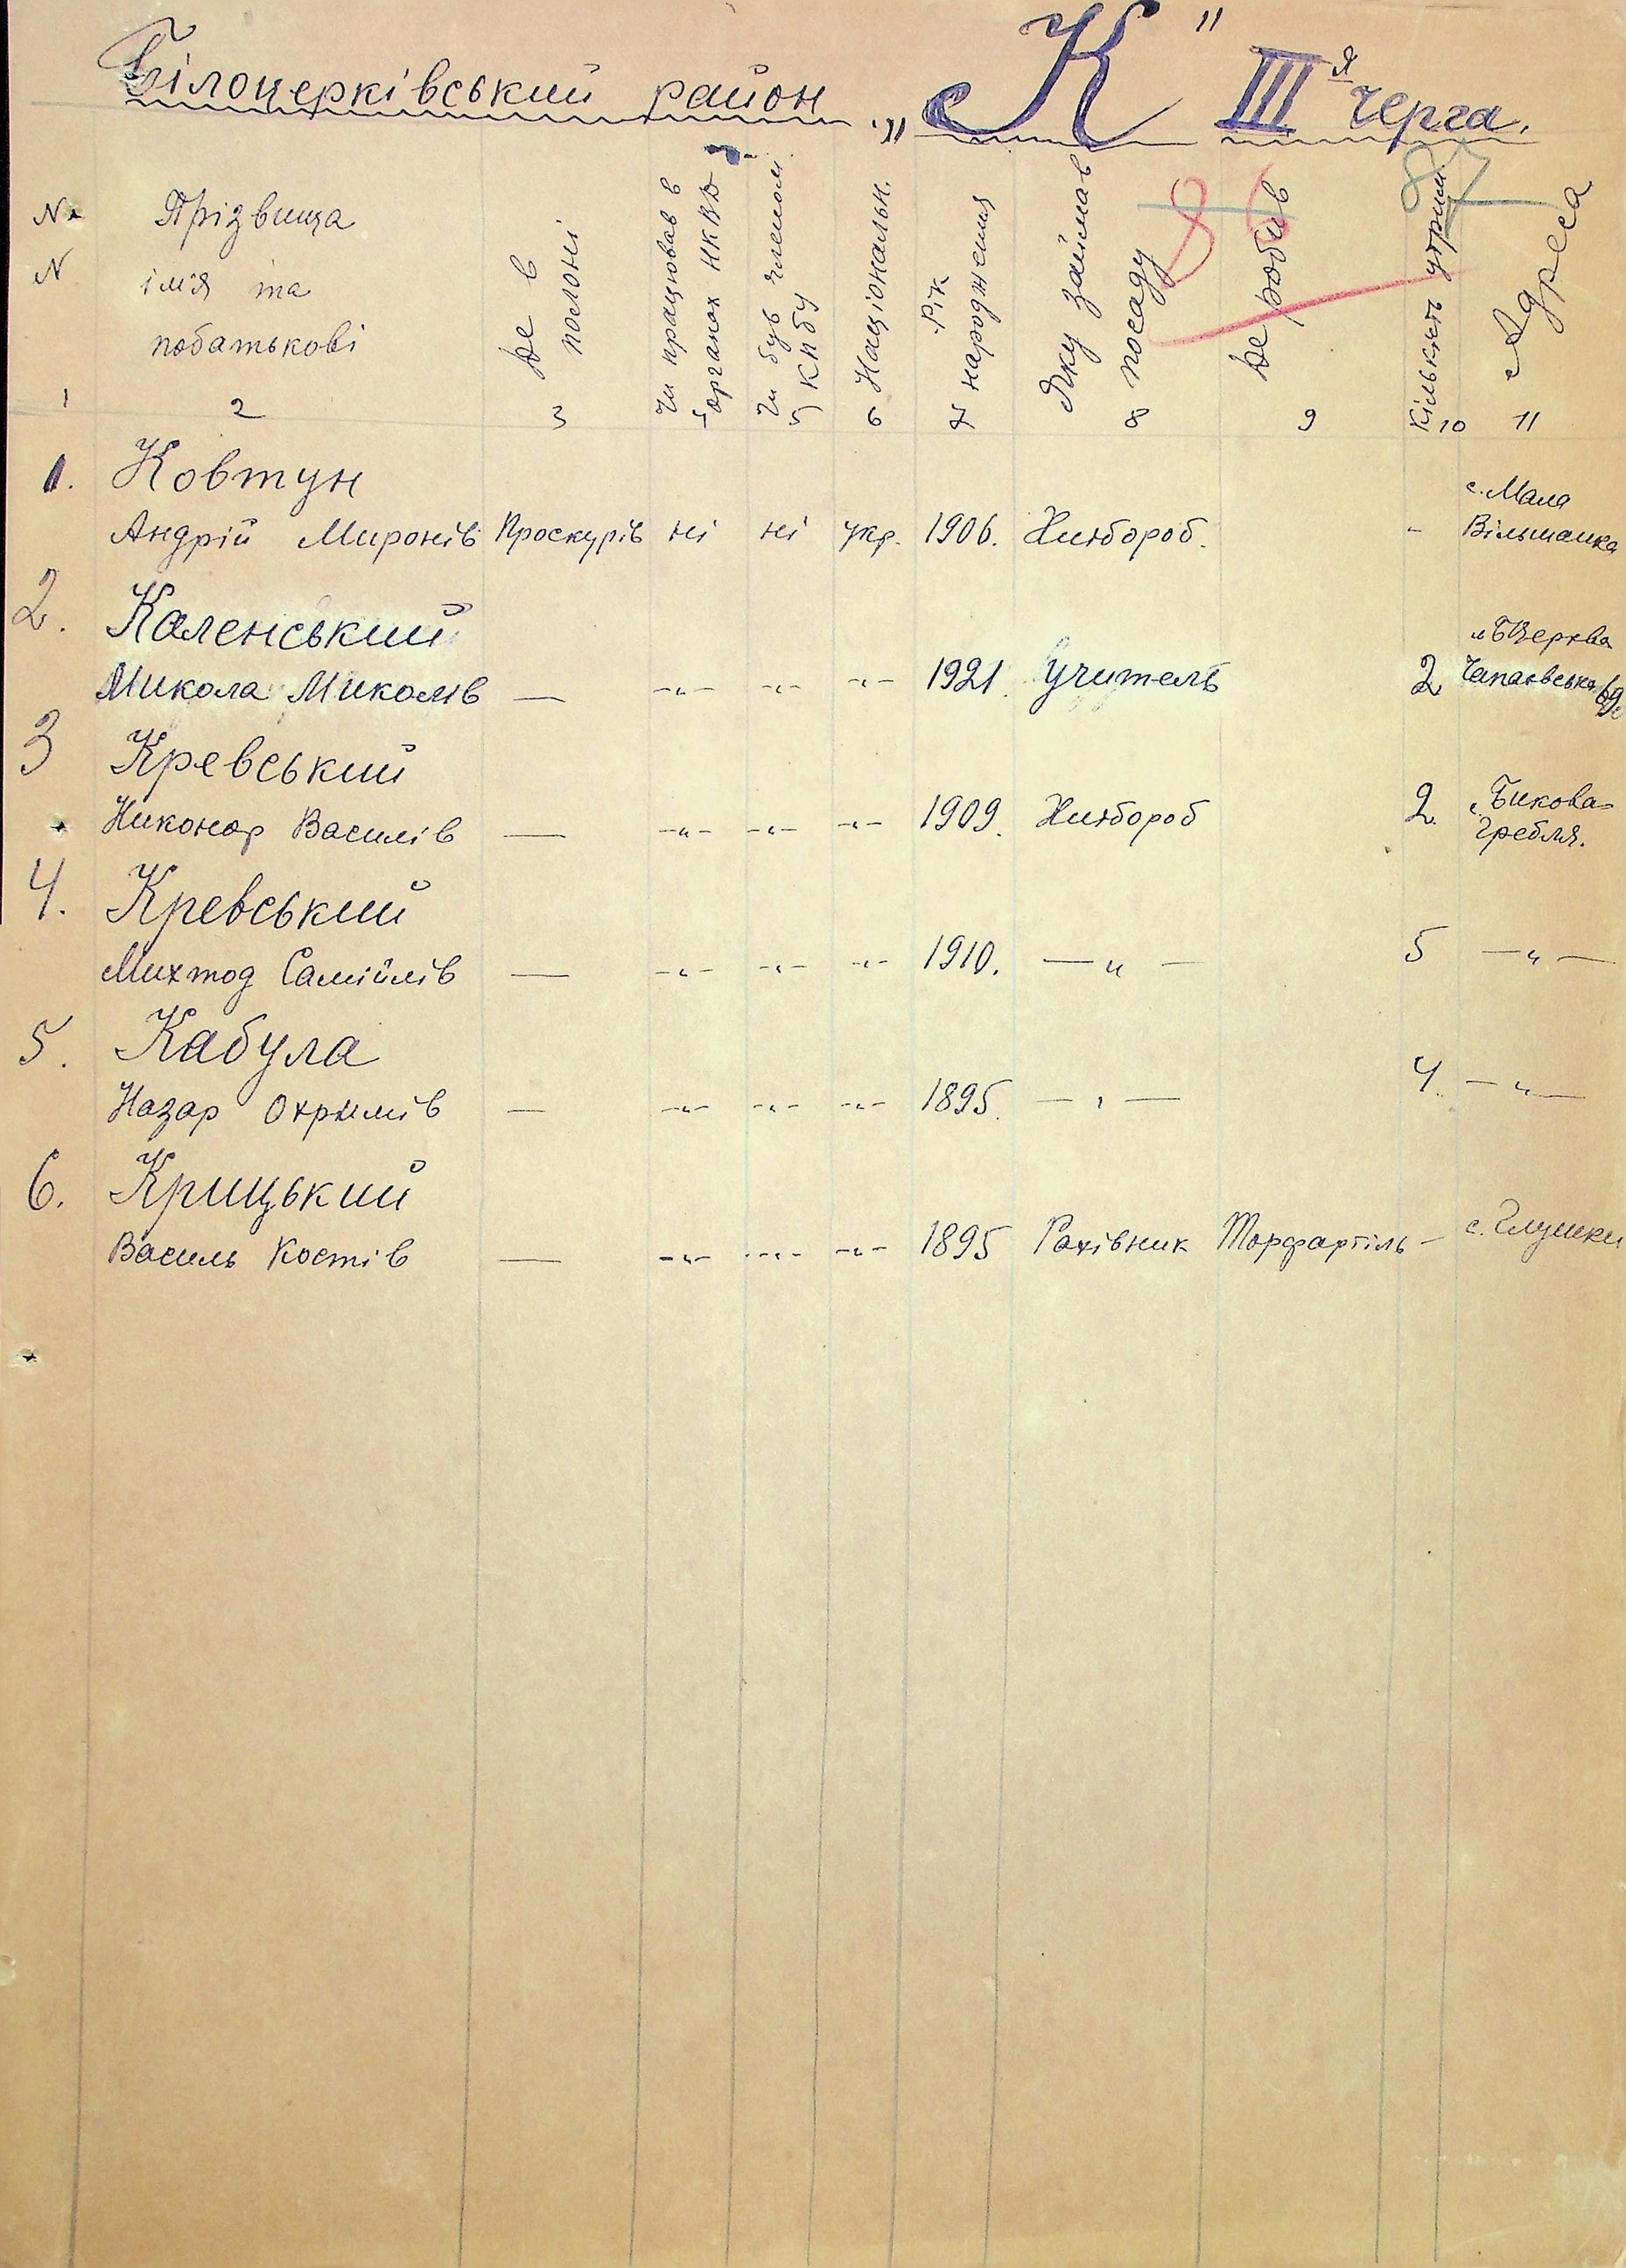 Білоцерківський район „К" III я черга.
№ № Прізвища імія та побатькові
Де в полоні
Чи працював в органах НКВД
Чи був членом КПбУ
Національн.
Рік народження
Яку займав посаду
Де робив
Кількість утрим.
Адреса
87
1 2 3 4 5 6 7 8 9 10 11
1. Ковтун с. Мала
Андрій Миронів Проскурів ні ні укр. 1906. Хлібороб. - Вільшанка
2. Каленський м. БЦерква
Микола Миколів — -"- -"- -"- 1921. Учитель 2 Чапаєвська
3 Кревський с. Бикова-
Никонор Василів — -"- -"- -"- 1909. Хлібороб 2. гребля.
4. Кревський
Михтод Самійлів — -"- -"- -"- 1910. —"— 5 —"—
5. Кабула
Назар Охрімів — -"- -"- -"- 1895. —"— 4. —"—
6. Крицький
Василь Костів — -"- -"- -"- 1895 Рахівник Торфартіль - с. Глушки